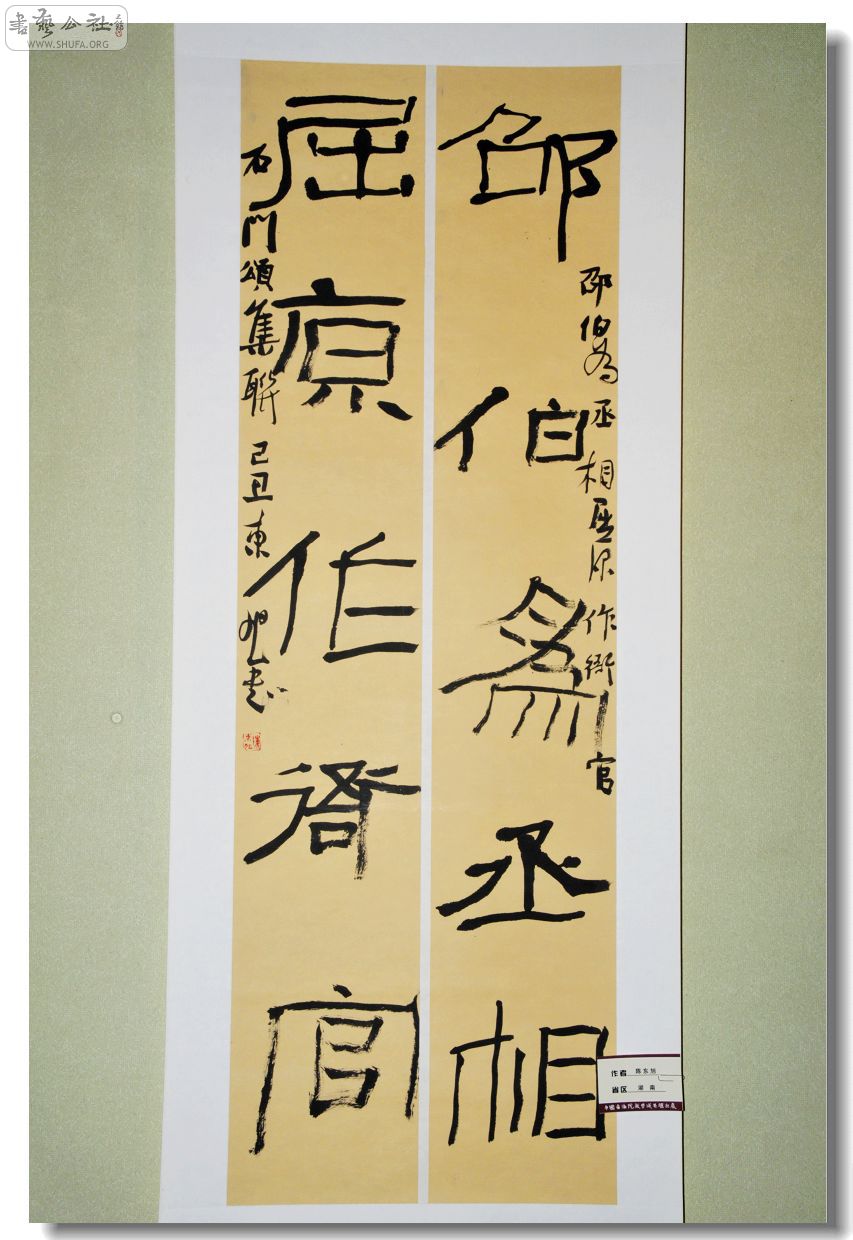 書藝公社
WWW.SHUFA.ORG
邵伯為丞相
邵伯為丞相屈原作衙官
屈原作衙官
石門頌集聯己丑東旭書
作者 陈东旭
省区 湖南